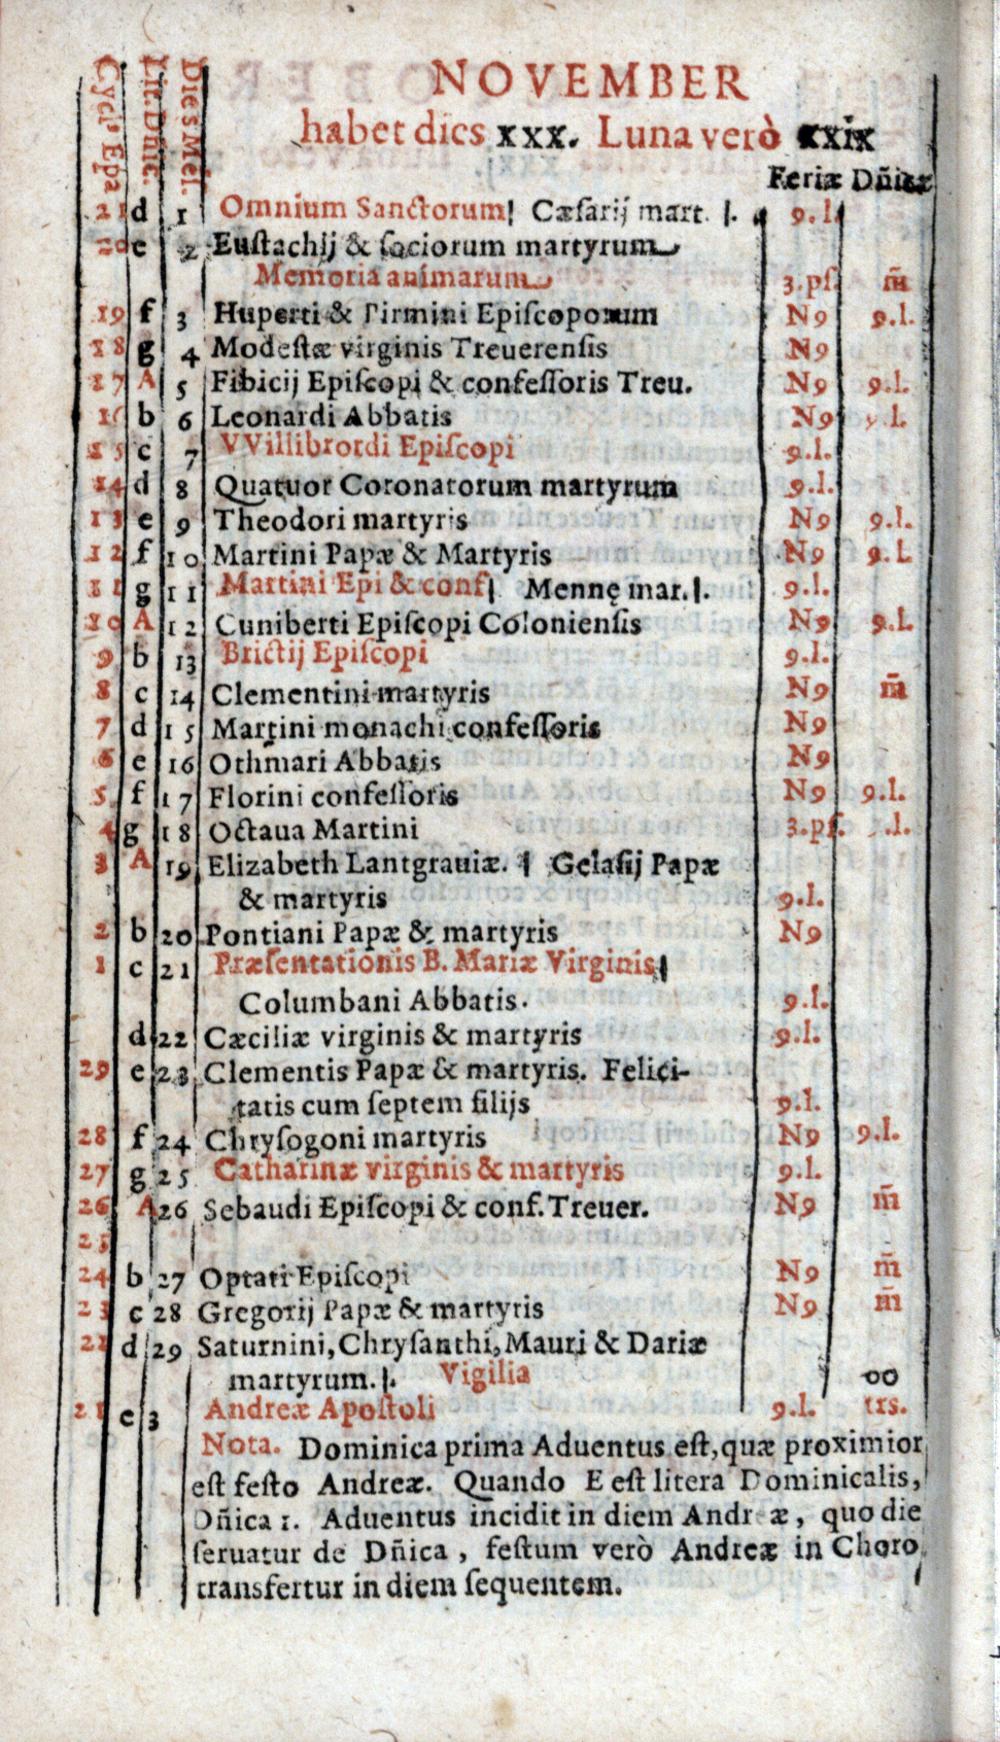 NOVEMBER
habet dies xxx. Luna verò xxix
Cycl⁹ Epa. Lit. Dñic. Dies Mēs. Feriæ Dñicæ
21 d 1 Omnium Sanctorum| Cæsarij mart. |. 9.l.
20 e 2 Eustachij & sociorum martyrum
Memoria animarum 3.ps. m̄
19 f 3 Huperti & Pirmini Episcoporum N9 9.l.
18 g 4 Modestæ virginis Treuerensis N9
17 A 5 Fibicij Episcopi & confessoris Treu. N9 9.l.
16 b 6 Leonardi Abbatis N9 9.l.
15 c 7 VVillibrordi Episcopi 9.l.
14 d 8 Quatuor Coronatorum martyrum 9.l.
13 e 9 Theodori martyris N9 9.l.
12 f 10 Martini Papæ & Martyris N9 9.l.
11 g 11 Martini Epi & conf| Mennę mar.|. 9.l.
10 A 12 Cuniberti Episcopi Coloniensis N9 9.l.
9 b 13 Brictij Episcopi 9.l.
8 c 14 Clementini martyris N9 m̄
7 d 15 Martini monachi confessoris N9
6 e 16 Othmari Abbatis N9
5 f 17 Florini confessoris N9 9.l.
4 g 18 Octaua Martini 3.ps. .l.
3 A 19 Elizabeth Lantgrauiæ. | Gelasij Papæ
& martyris 9.l.
2 b 20 Pontiani Papæ & martyris N9
1 c 21 Præsentationis B. Mariæ Virginis|
Columbani Abbatis. 9.l.
d 22 Cæciliæ virginis & martyris 9.l.
29 e 23 Clementis Papæ & martyris. Felici-
tatis cum septem filijs 9.l.
28 f 24 Chrysogoni martyris N9 9.l.
27 g 25 Catharinæ virginis & martyris 9.l.
26 A 26 Sebaudi Episcopi & conf. Treuer. N9 m̄
25
24 b 27 Optati Episcopi N9 m̄
23 c 28 Gregorij Papæ & martyris N9 m̄
22 d 29 Saturnini, Chrysanthi, Mauri & Dariæ
martyrum.|. Vigilia oo
21 e 3 Andreæ Apostoli 9.l. trs.
Nota. Dominica prima Aduentus est, quæ proximior
est festo Andreæ. Quando E est litera Dominicalis,
Dñica 1. Aduentus incidit in diem Andreæ, quo die
seruatur de Dñica, festum verò Andreæ in Choro
transfertur in diem sequentem.